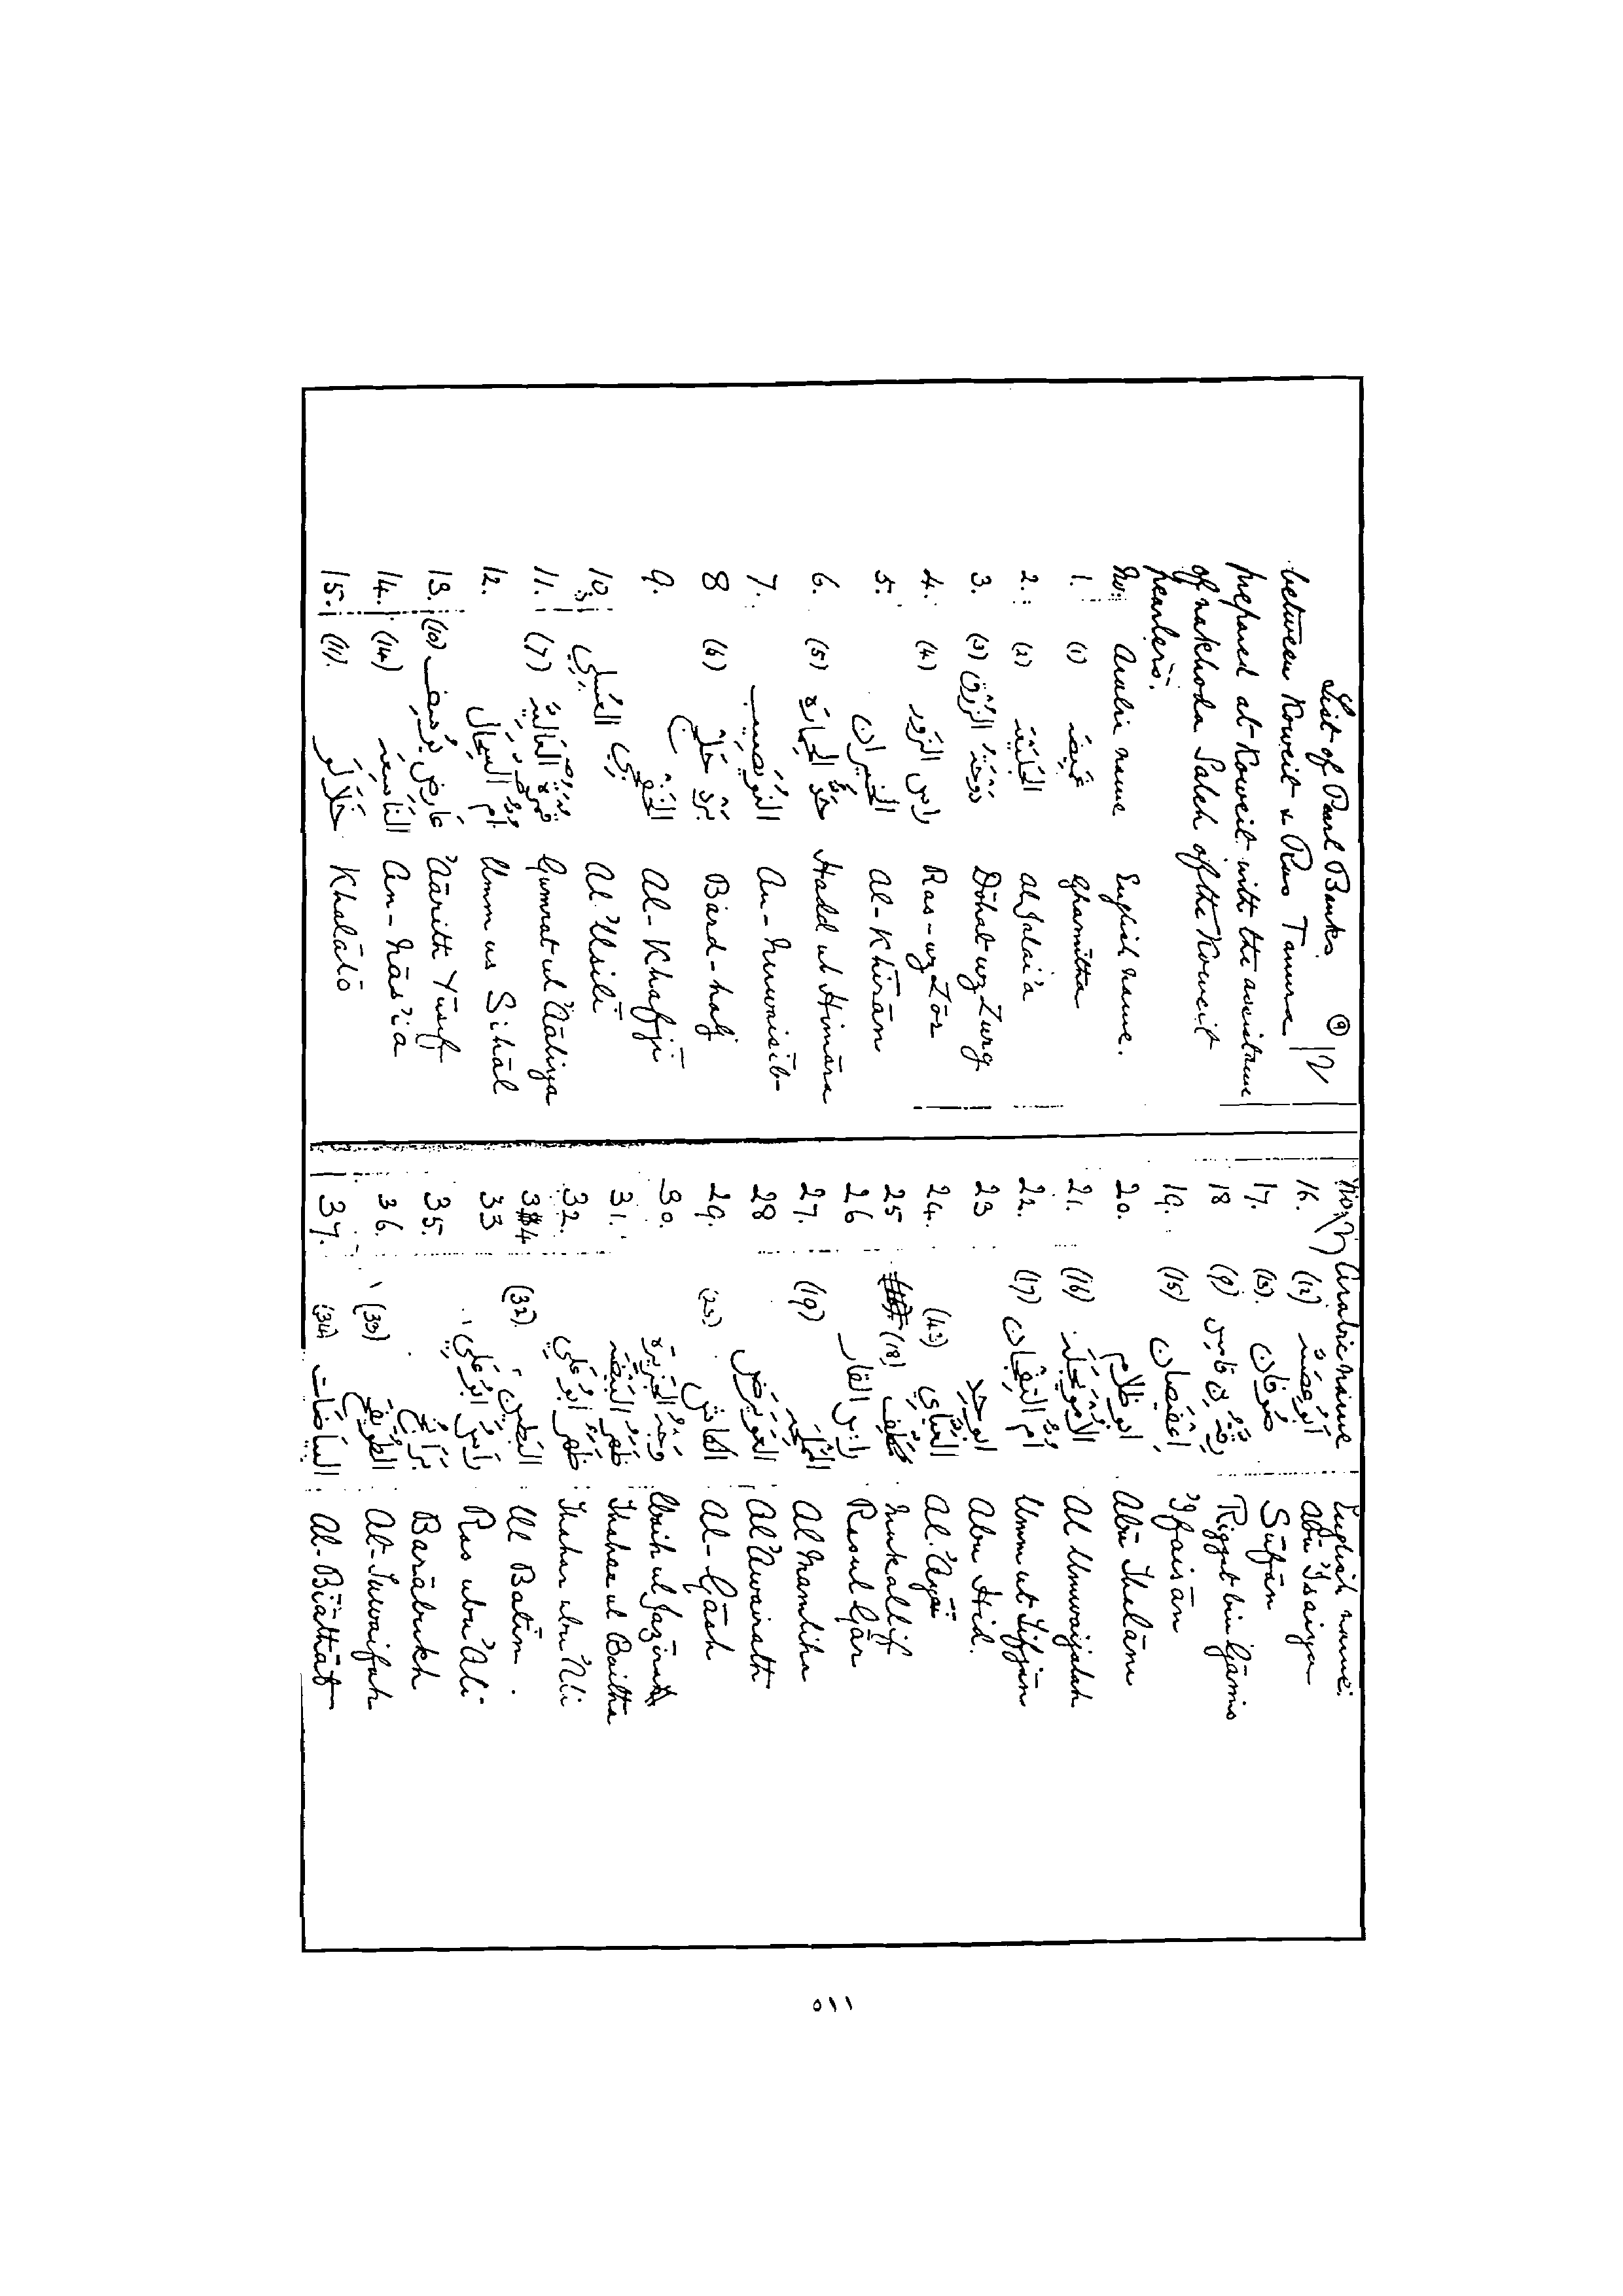 List of Pearl Banks. ⑨
between Koweit & Ras Tanura
prepared at Koweit with the assistance
of nakhoda Saleh of the Koweit
pearlers.
No: Arabic name English name.
1. (1) غميضه Ghamitha
2. (2) الجليعة al Jalai'a
3. (3) دوحة الزرق Dōhat uz Zurg
4. (4) راس الزور Ras-uz Zōr
5. الخيران Al-Khīrān
6. (5) حد الحماره Hadd ul Himāra
7. النويصيب An-Nuwaisīb
8 (6) برد حلج Bard-halj
9. الخفجي Al-Khafjī
10. العسيلي Al 'Usilī
11. (7) غمرة العالية Gumrat ul 'Āāliya
12. ام السحال Umm us Sihāl
13. (10) عارض يوسف 'Āārith Yūsif
14. (14) الناسعه An-Nās'ia
15. (11). خلالو Khalālō
No. Arabic name English name:
16. (12) ابو عصية Abū 'Isaiya
17. (13). صوفان Sūfān
18 (9) رقة بن قامس Riggat bin Gāmis
19. (15) اعفيصان 'Ifaisān
20. ابو ظلام Abū Thelām
21. (16) الامويجله Al Umwaijalah
22. (17) ام التفجان Umm ut Tifjān
23 ابو حد Abu Hid.
24. (43) العياي Al.'Ayāī
25 (18) مكلف Mukallif
26 راس القار Rasul Gār
27. (19) المملحه Al Mamliha
28 العويرض Al 'Awairath
29. (23) الكاش Al-Gāsh
30. وجه الجزيره Wajh ul Jazīrah
31. ظهر البيضه Thahar ul Baitha
32. ظهر ابو علي Thahar abu 'Ali
34 (32) البطين Ul Batīn.
33 راس ابو علي Ras abu 'Ali
35. برابخ Barābukh
36. (33) الطويفح At-Tuwaifah
37. (34) البياضات Al-Bīāthāt
٥١١